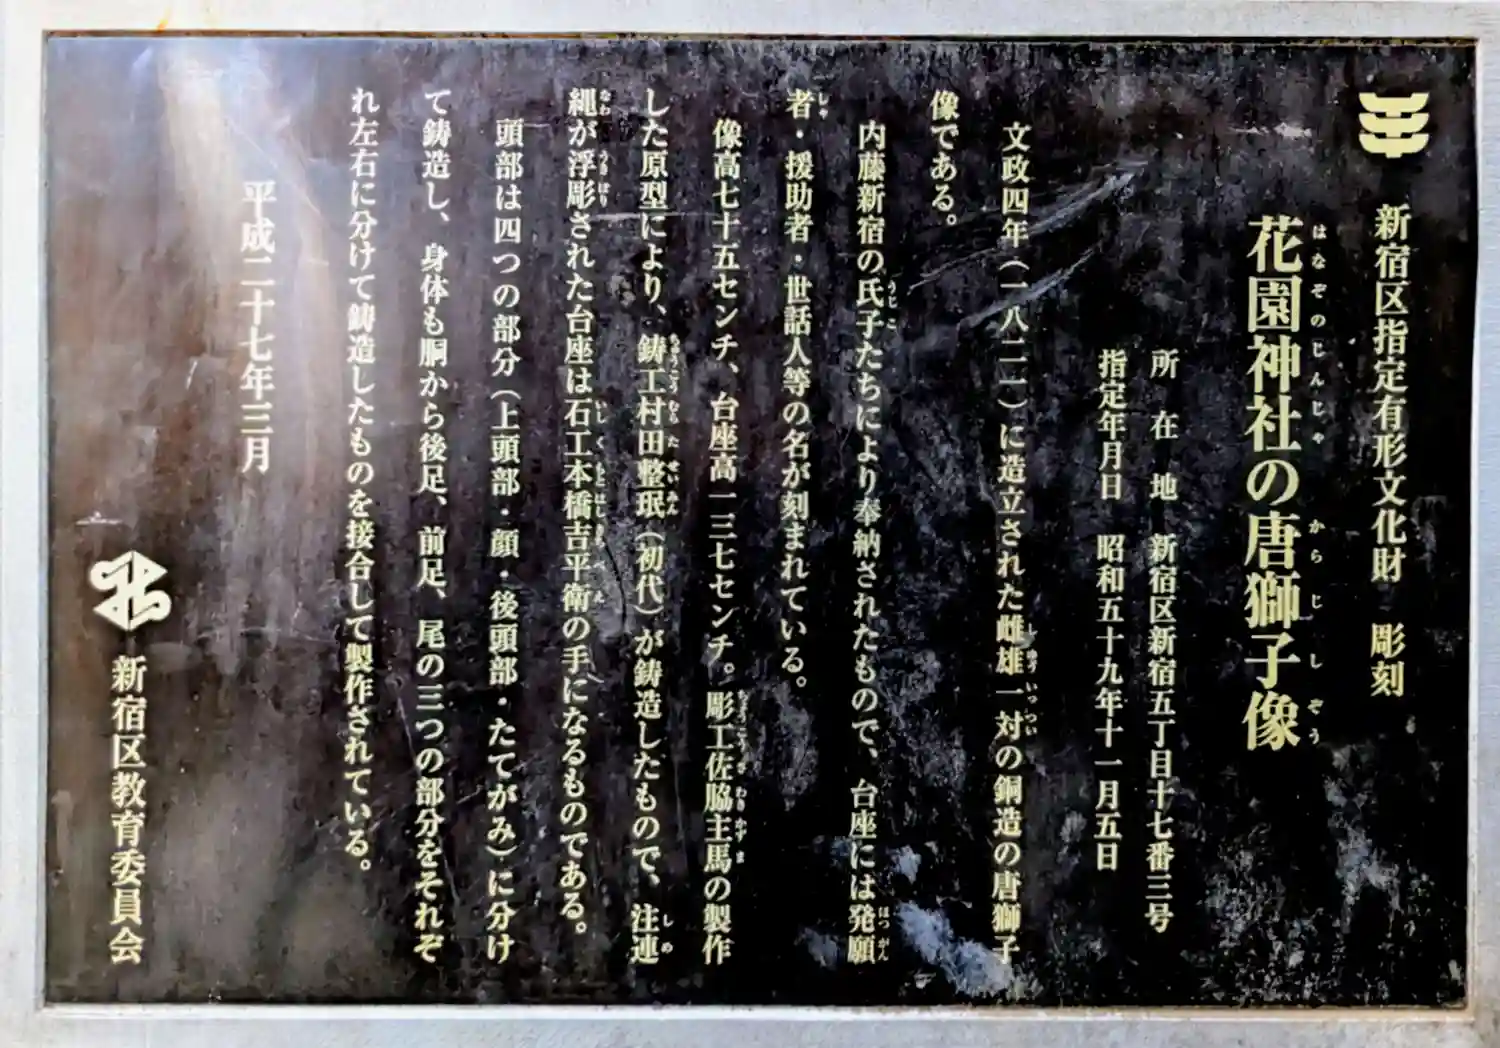 新宿区指定有形文化財　彫刻
はなぞのじんじゃ　からじしぞう
花園神社の唐獅子像
所在地　新宿区新宿五丁目十七番三号
指定年月日　昭和五十九年十一月五日
文政四年（一八二一）に造立された雌雄一対の銅造の唐獅子
像である。
内藤新宿の氏子たちにより奉納されたもので、台座には発願
者・援助者・世話人等の名が刻まれている。
像高七十五センチ、台座高一三七センチ。彫工佐脇主馬の製作
した原型により、鋳工村田整珉（初代）が鋳造したもので、注連
縄が浮彫された台座は石工本橋吉平衛の手になるものである。
頭部は四つの部分（上頭部・顔・後頭部・たてがみ）に分け
て鋳造し、身体も胴から後足、前足、尾の三つの部分をそれぞ
れ左右に分けて鋳造したものを接合して製作されている。
平成二十七年三月
新宿区教育委員会